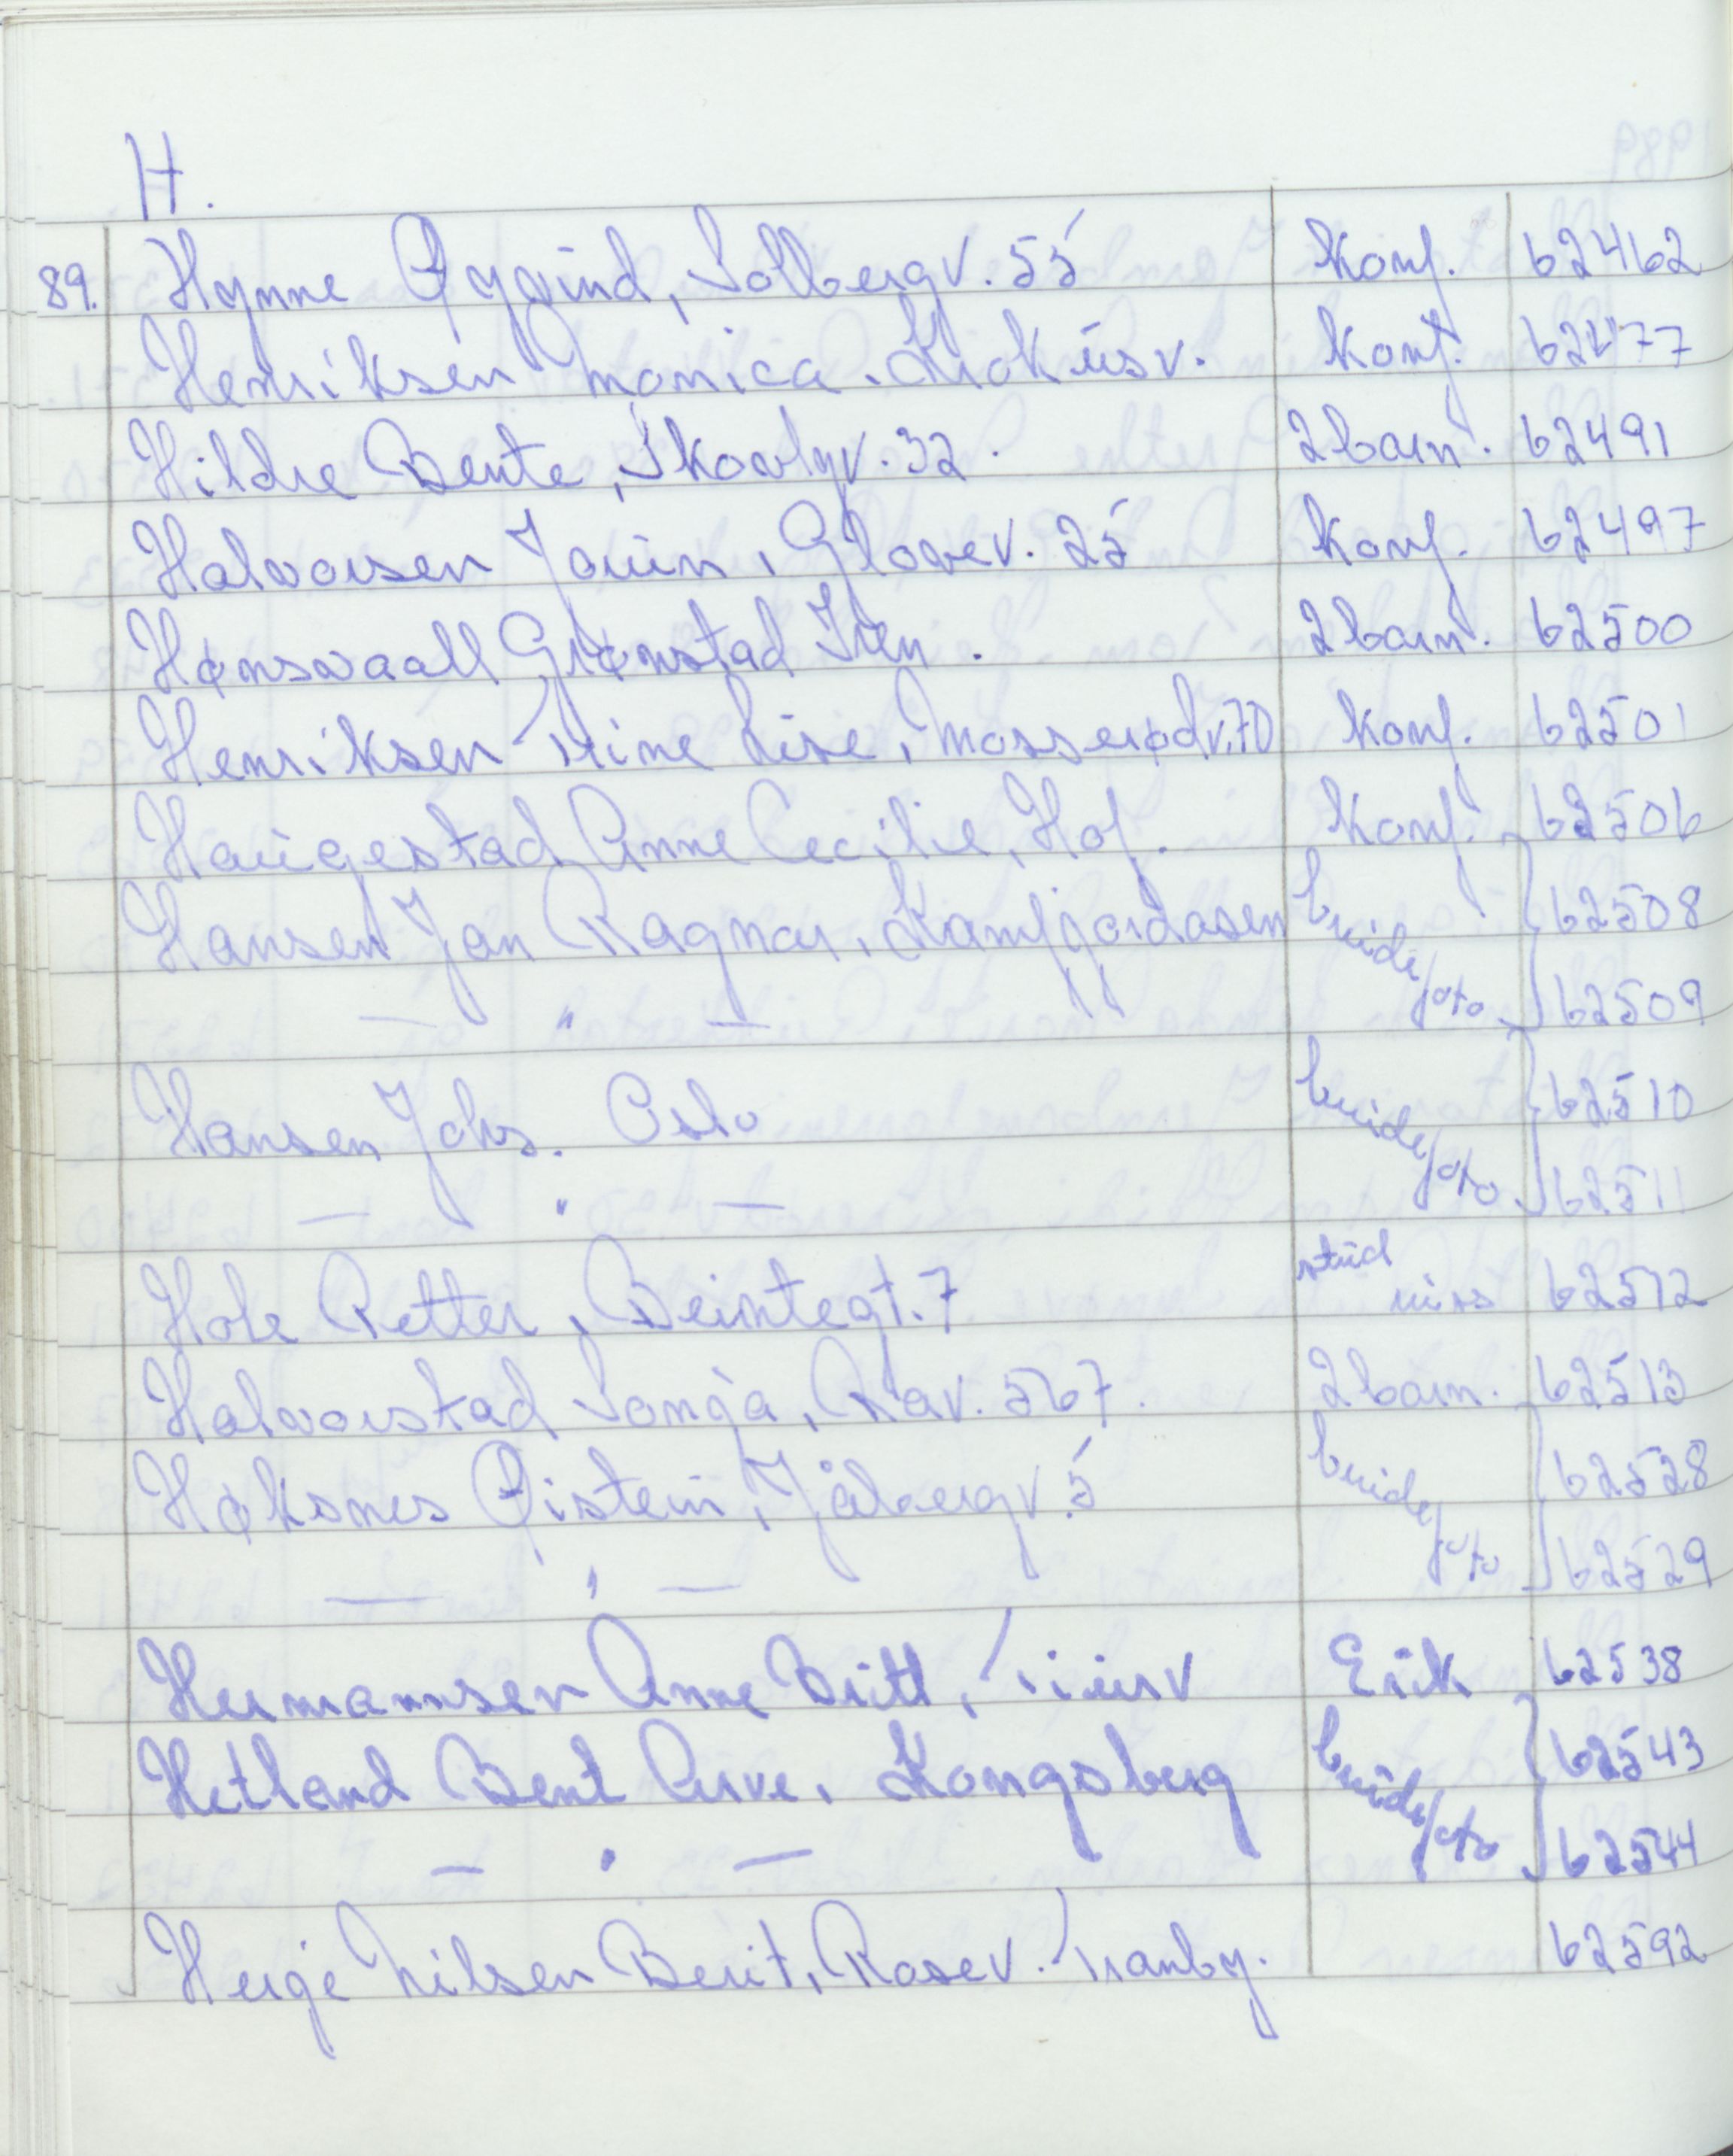 H.
89. Hynne Øyvind, Solbergv. 55 Konf. 62462
Henriksen Monica. Krokusv. Konf. 62477
Hildre Bente, Skovlyv. 32. 2 barn. 62491
Halvorsen Jouin, Glosev. 25 Konf. 62497
Hønsvaall Grønstad Iren. 2 barn. 62500
Henriksen Trine Lise, Mosserødv. 70 Konf. 62501
Haugestad Anne Cecilie, Hof. Konf. 62506
Hansen Jan Ragnar, Kamfjordåsen brudefoto 62508
— " — 62509
Hansen Johs. Oslo brudefoto 62510
— " — 62511
Hole Petter, Beintegt. 7 stud 62512
Halvorstad Sonja, Rav. 567. 2 barn. 62513
Høksnes Øistein, Jåbergv. 5 brudefoto 62528
— " — 62529
Hermannsen Anne Britt, Erik 62538
Hetland Bent Arve, Kongsberg brudefoto 62543
— " — 62544
Herge Nilsen Berit, Rosev. Tranby. 62592